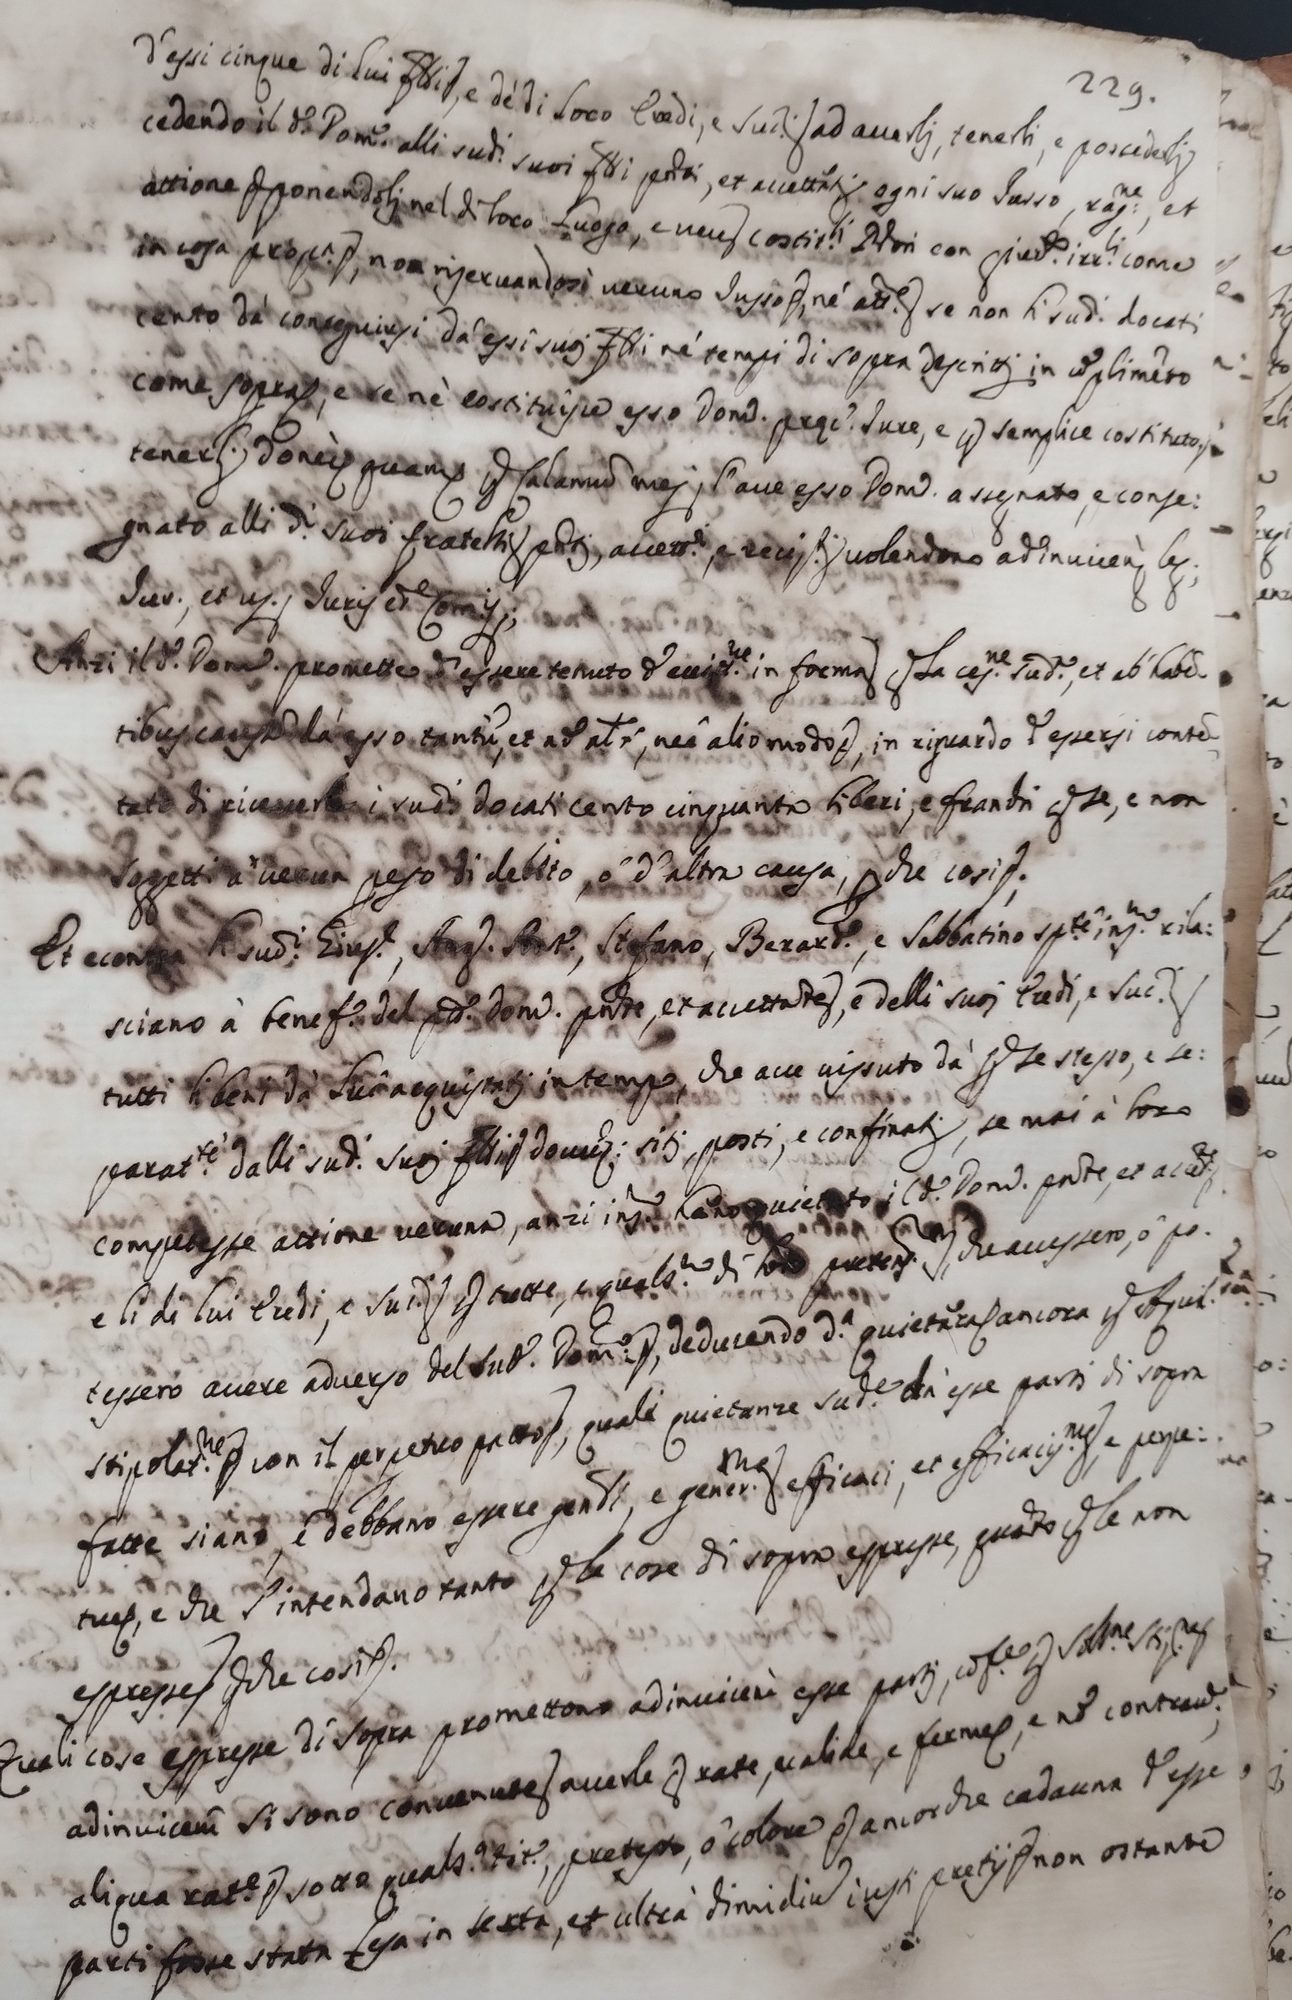 229.
d'essi cinque di lui fr̃lli, e dè di loro eredi, e sud.i ad averli, tenerli, e possederli
cedendo il d.o Dom.co alli sud.i suoi fr̃lli pñti, et accettãti ogni suo Jusso, rag.ne, et
attione ponendoli nel di loro luogo, e vece, costit.li Pr̃ori con giur.o irr.li come
in cosa prop.a, non riservandosi veruno Jusso, né att.e se non li sud.i docati
cento dà conseguirsi dà essi suoi fr̃lli né tempi di sopra descritti in cõplimẽto
come sopra, e se nè costituisce esso Dom.co Jure, e semplice costituto,
tenerli donec quam Calamũ mei, l'ave esso Dom.co assegnato, e conse:
gnato alli d.i suoi fratelli pñti, accett.i, e recip.i volendono adinvicem
Jur., et Juris
Anzi il d.o Dom.co promette d'essere tenuto d'evitt.ne in forma p la ces.ne sud.a, et ab habẽ
tibus causã dà esso tantũ, et nõ alr̃, neq̃ alio modo, in riguardo d'essersi contẽ
tato di ricevere i sud.i docati cento cinquanta liberi, e franchi p se, e non
soggetti à verun peso di debito, ò d'altra causa, p che così;
Et econtra li sud.i Gius.e, Ang.o Ant.o, Stefano, Berard.o, e Sabbatino spte ins.m rila:
sciano à benef.o del pto. Dom.co pñte, et accettante, e delli suoi eredi, e suc.i
tutti li beni dà lui acquistati in tempo, che ave vissuto dà p se stesso, e se:
parat.te dalli sud.i suoi fr̃lli dovũq; siti, posti, e confinati, se mai à loro
competesse attione veruna, anzi ins.m hãno quietato il d.o Dom.co pñte, et accett.e
e li di lui eredi, e suc.i p tutte, e quals.no di loro pretens.ni, che avessero, ò po:
tessero avere adverso del sud.o Dom.co, deducendo d.a quietãza ancora p Aquil.na
stipolat.ne con il perpetuo patto, quali quietanze sud.e dà esse parti di sopra
fatte siano, e debbano essere gen̄li, e gener.me efficaci, et efficacis.me, e perpe:
tue, e che s'intendano tanto p le cose di sopra espresse, quãto p le non
espresse p che così.
Quali cose espresse di sopra promettono adinvicem esse parti, cõf.e p soll.ne stip.ne
adinvicem si sono convenute averle p rate, valide, e ferme, e nõ contraven.e
aliqua rat.e sotto quals.o tit.o, pretesto, ò colore ancorche cadauna d'esse
parti fosse stata lesa in sexta, et ultrà dimidiũ iusti pretij non ostante